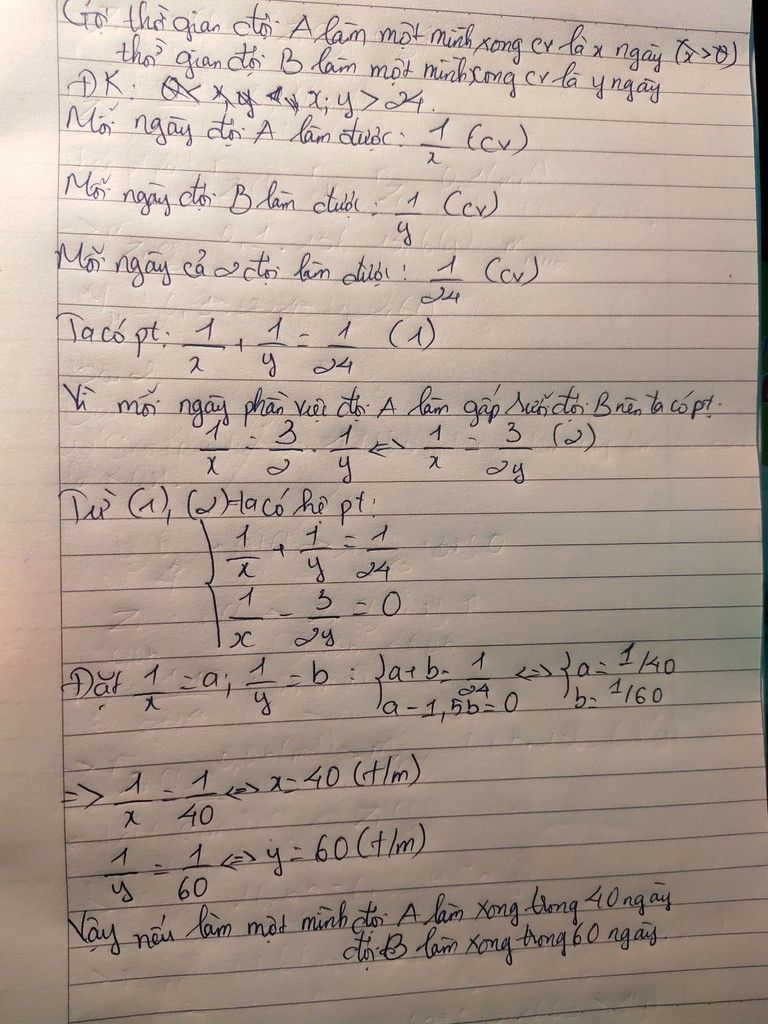 Gọi thời gian đội A làm một mình xong cv là x ngày (x>0)
thời gian đội B làm một mình xong cv là y ngày
ĐK: x; y > 24.
Mỗi ngày đội A làm được: 1/x (cv)
Mỗi ngày đội B làm được: 1/y (cv)
Mỗi ngày cả 2 đội làm được: 1/24 (cv)
Ta có pt: 1/x + 1/y = 1/24 (1)
Vì mỗi ngày phần việc đội A làm gấp rưỡi đội B nên ta có pt:
1/x = 3/2 . 1/y <=> 1/x = 3/2y (2)
Từ (1), (2) ta có hệ pt:
{ 1/x + 1/y = 1/24
1/x - 3/2y = 0
Đặt 1/x = a; 1/y = b : { a+b = 1/24 <=> { a = 1/40
a - 1,5b = 0 b = 1/60
=> 1/x = 1/40 <=> x = 40 (t/m)
1/y = 1/60 <=> y = 60 (t/m)
Vậy nếu làm một mình đội A làm xong trong 40 ngày
đội B làm xong trong 60 ngày.